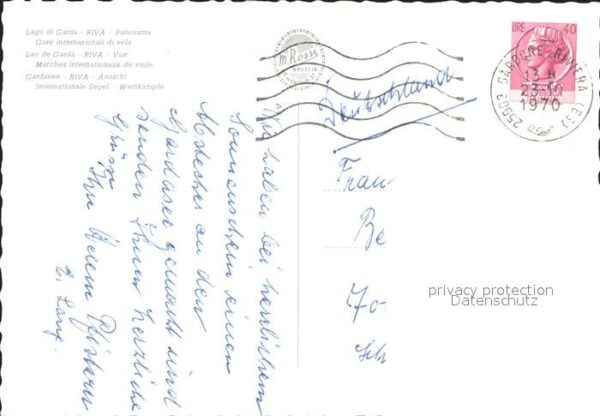 Lago di Garda - RIVA - Panorama
Gare internazionali di vela
Lac de Garda - RIVA - Vue
Matches internationaux de voile
Gardasee - RIVA - Ansicht
Internationale Segel - Wettkämpfe
mRossi
BRESCIA
LIRE 40
25083 GARDONE RIVIERA (BS)
13-H
23-10
1970
Deutschland
Wir haben bei herrlichem
Sonnenschein einen
Abstecher an den
Gardasee gemacht und
senden Ihnen herzliche
Grüsse
Ihre
Frau
Be
70-
Sch
privacy protection
Datenschutz